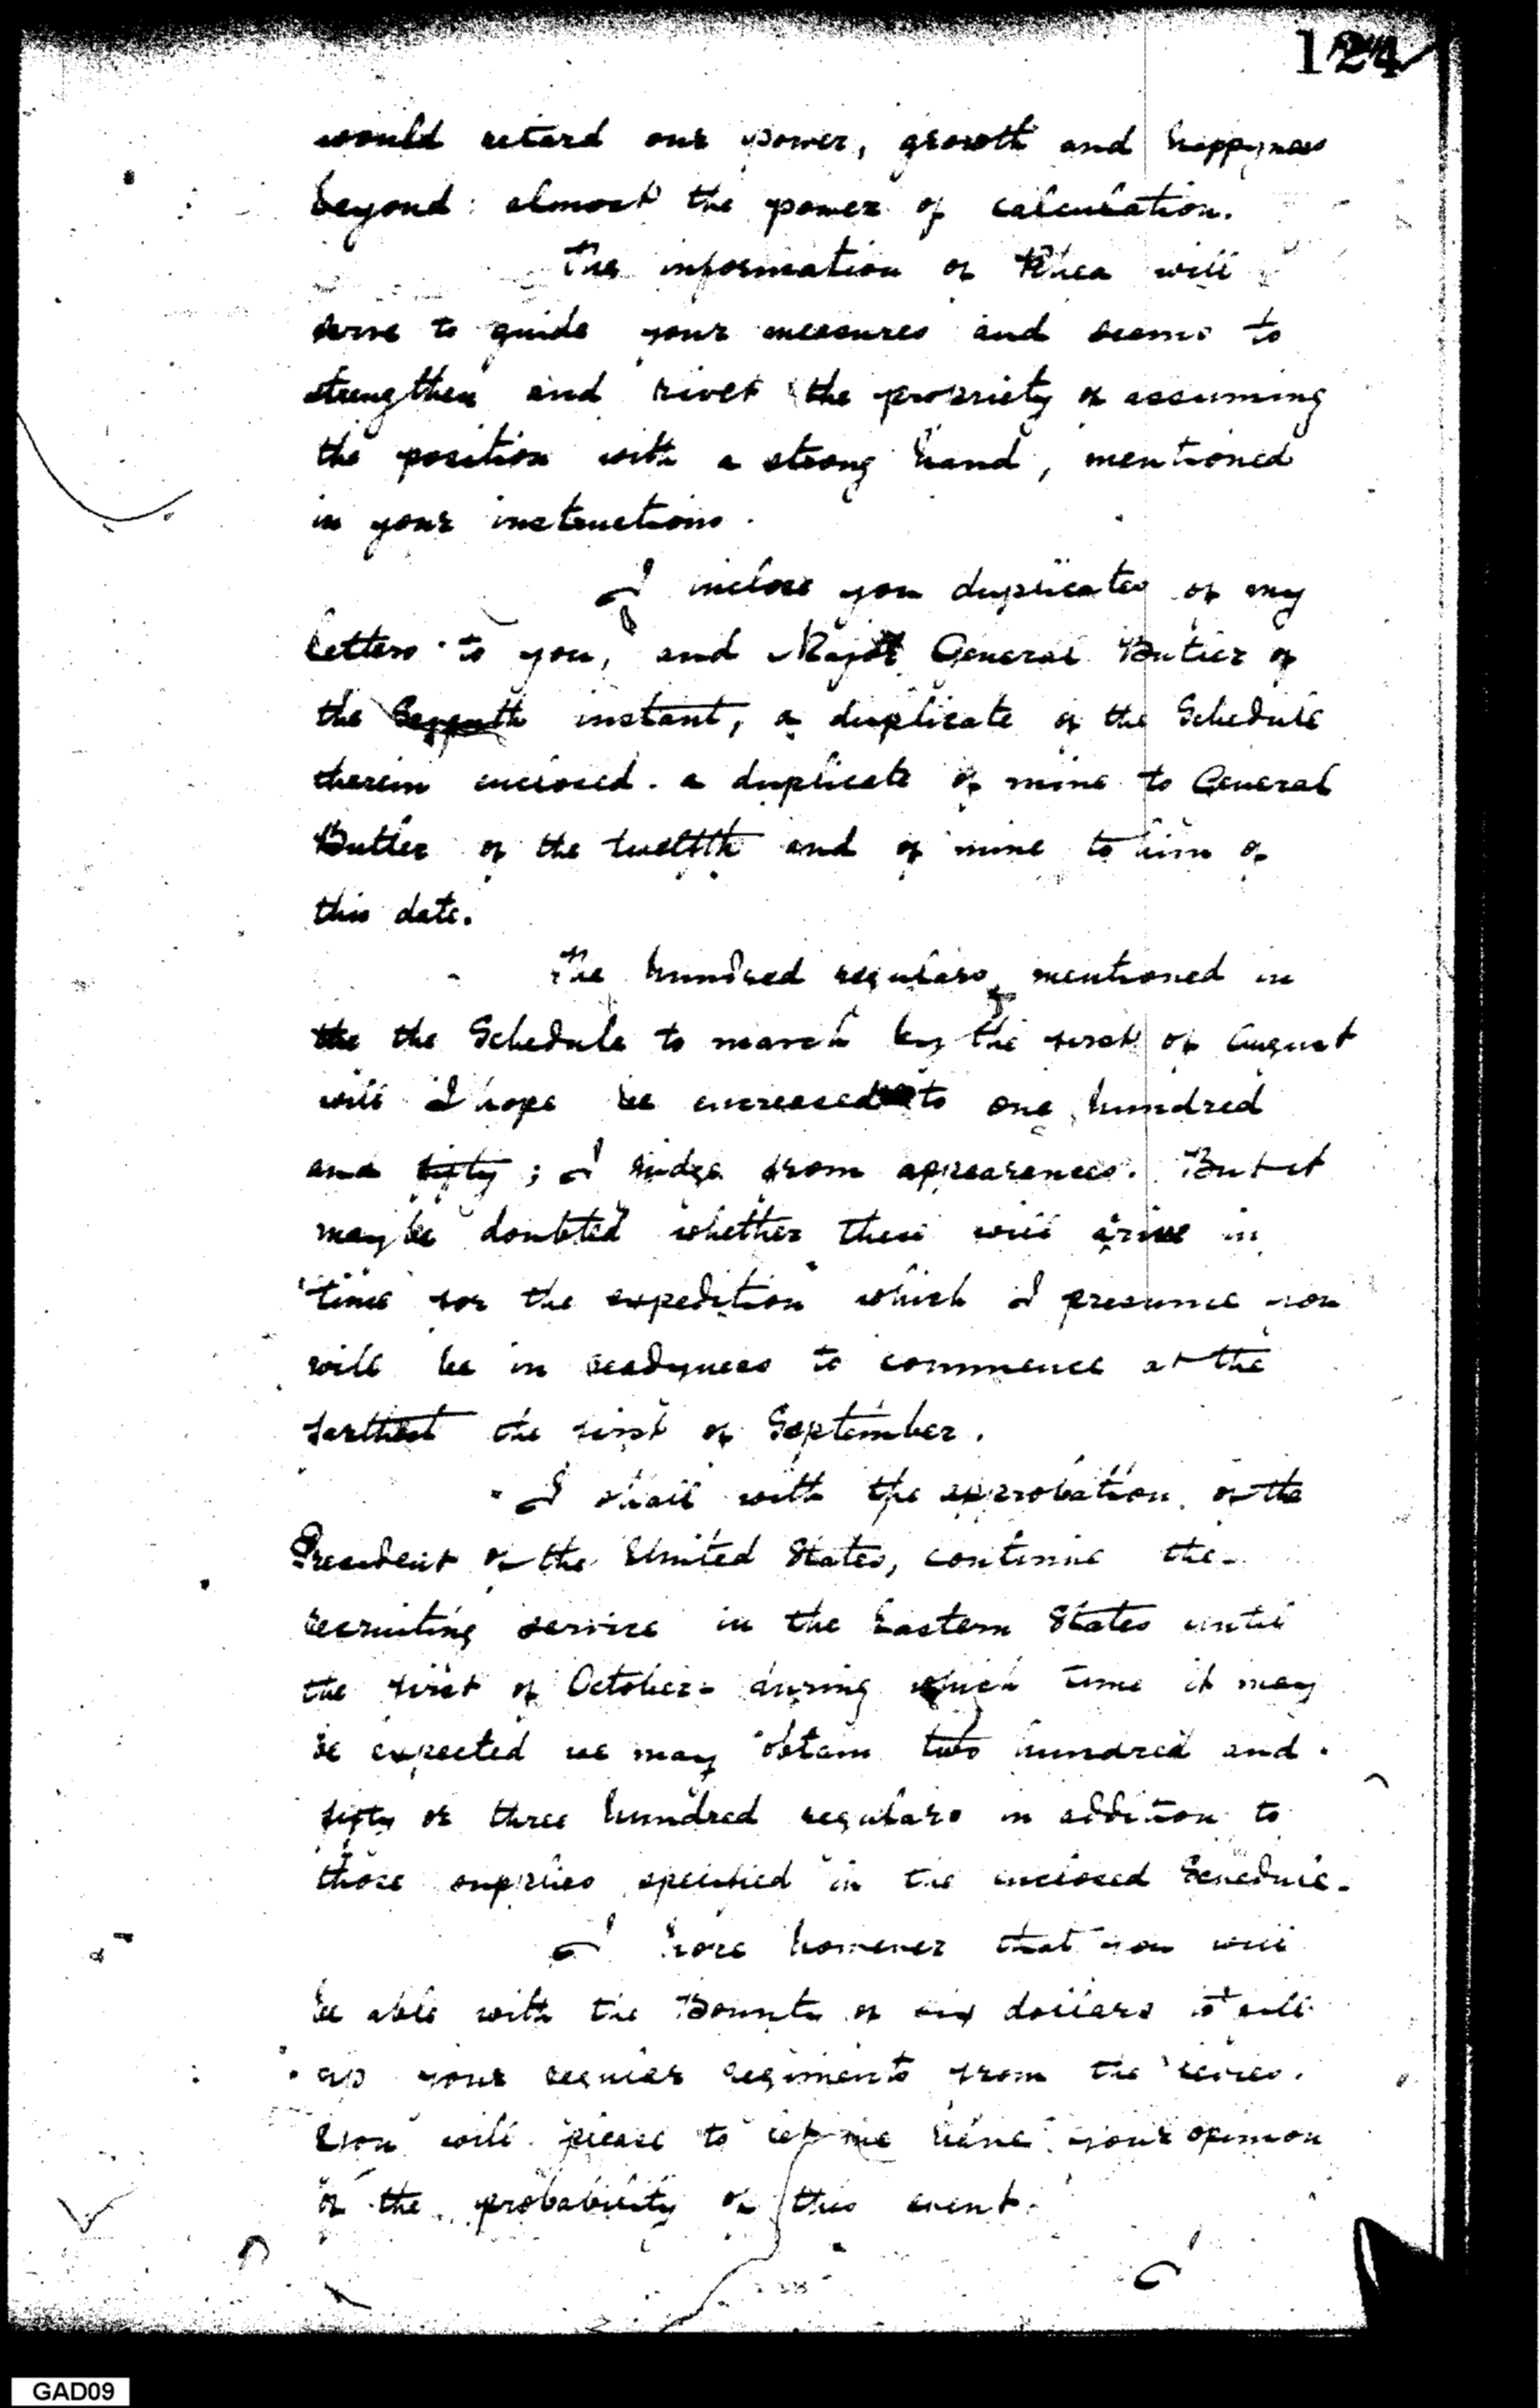 124
would retard our power, growth and happyness
beyond almost the power of calculation.
The information of Rhea will
serve to guide your measures and seems to
strengthen and rivet the propriety of assuming
the position with a strong hand, mentioned
in your instructions.
I inclose you duplicates of my
letters to you, and Major General Butler of
the Seventh instant, a duplicate of the Schedule
therein enclosed. a duplicate of mine to General
Butler of the twelfth and of mine to him of
this date.
The hundred regulars, mentioned in
the the Schedule to march by the first of August
will I hope be encreased to one hundred
and fifty; I judge from appearances. But it
may be doubted whether these will arive in
time for the expedition which I presume you
will be in readyness to commence at the
farthest the first of September.
I shall with the approbation of the
President of the United States, continue the
recruiting service in the Eastern States until
the first of October - during which time it may
be expected we may obtain two hundred and
fifty or three hundred regulars in addition to
those supplies specified in the enclosed Schedule.
I hope however that you will
be able with the Bounty of six dollars to fill
up your regular regiments from the levies.
You will please to let me have your opinion
of the probability of this event.
GAD09